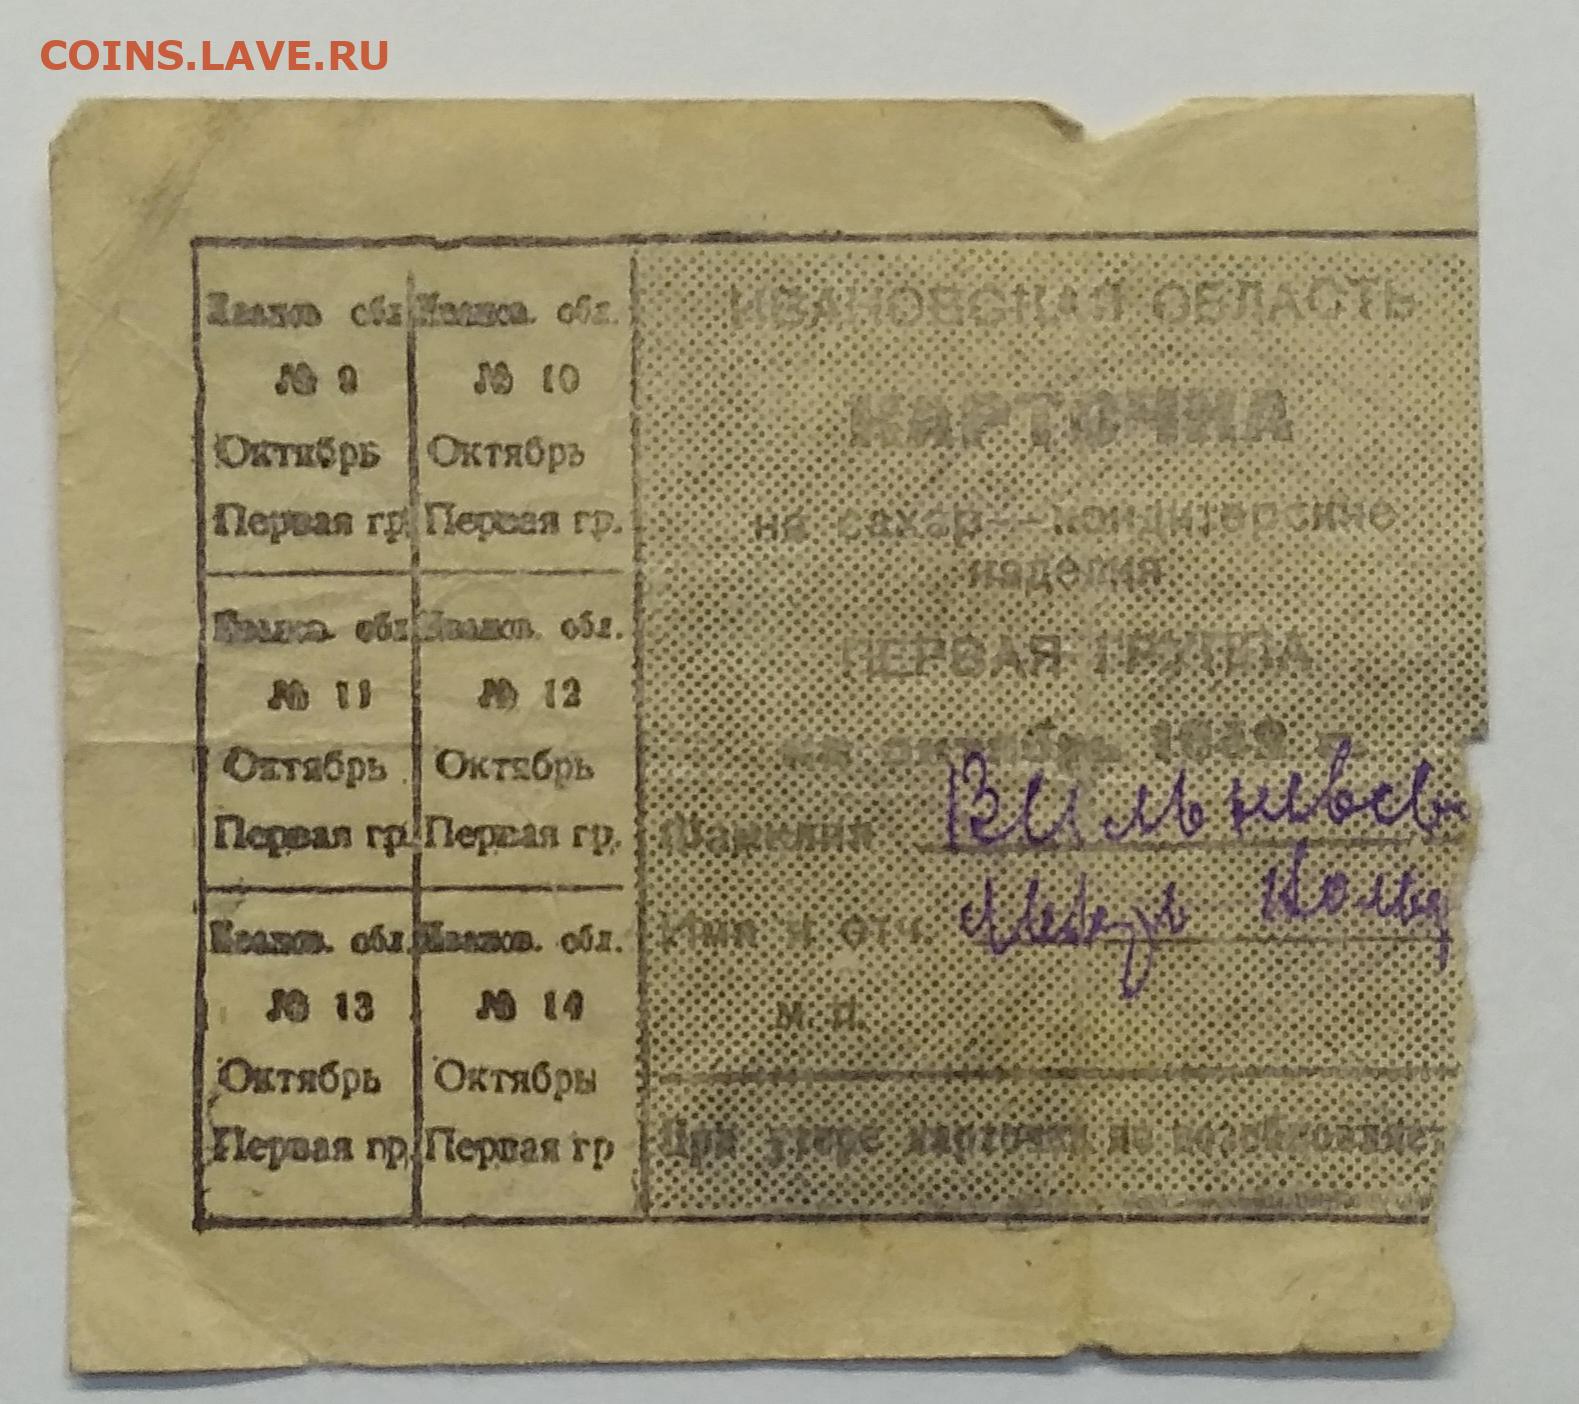 COINS.LAVE.RU
Иванов. обл. Иванов. обл.
№ 9 № 10
Октябрь Октябрь
Первая гр. Первая гр.
Иванов. обл. Иванов. обл.
№ 11 № 12
Октябрь Октябрь
Первая гр. Первая гр.
Иванов. обл. Иванов. обл.
№ 13 № 14
Октябрь Октябры
Первая гр. Первая гр
ИВАНОВСКАЯ ОБЛАСТЬ
КАРТОЧКА
на сахар—кондитерские
изделия
ПЕРВАЯ ГРУППА
на октябрь
Фамилия
Имя и отч.
М. П.
При утере карточка не возобновляет